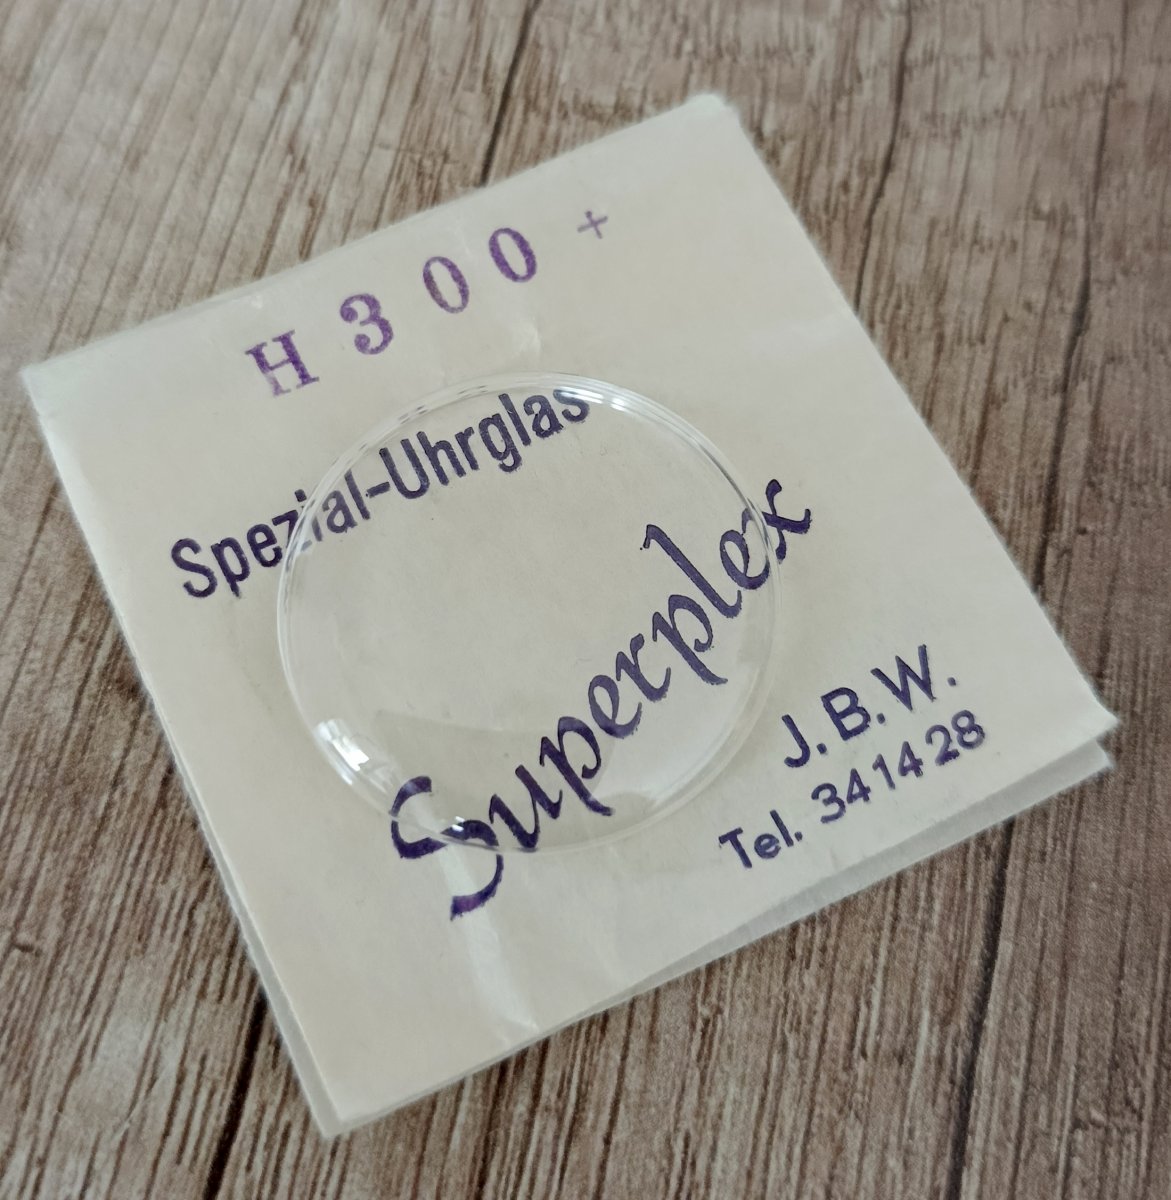 H 300 +
Spezial-Uhrglas
Superplex
J.B.W.
Tel. 341428